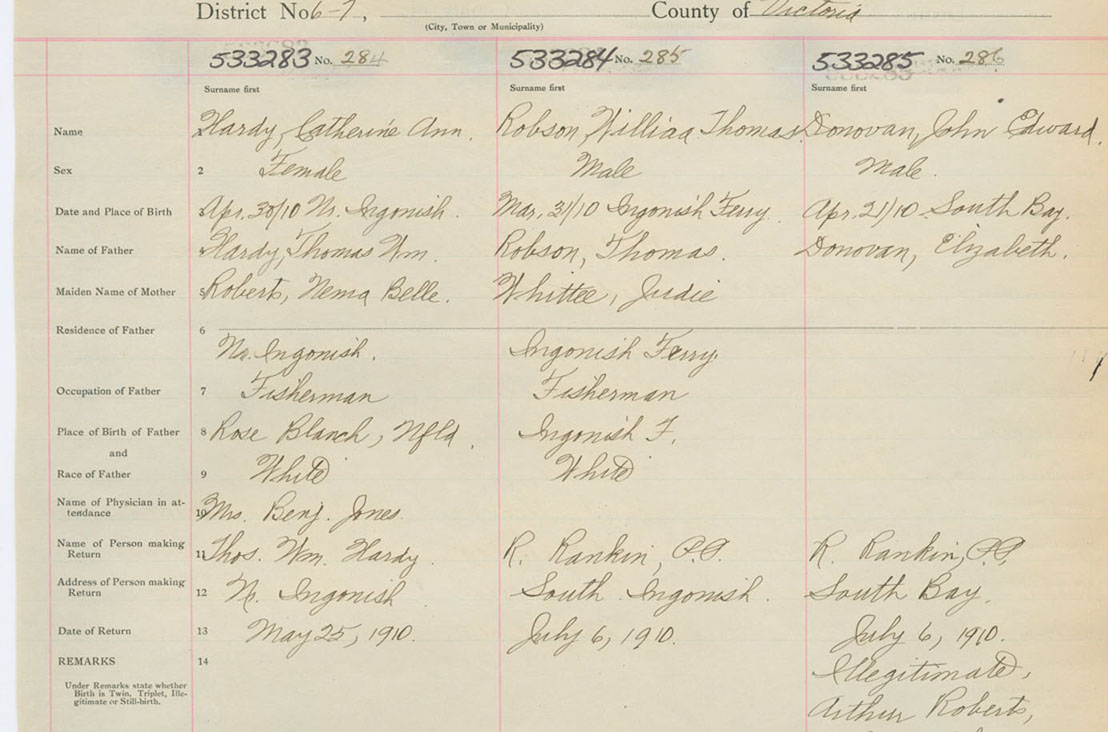 District No 6-7, County of Victoria
(City, Town or Municipality)
533283 No. 284 533284 No. 285 533285 No. 286
Surname first Surname first Surname first
Name 1 Hardy, Catherine Ann. Robson, William Thomas. Donovan, John Edward.
Sex 2 Female Male Male.
Date and Place of Birth Apr. 30/10 Nr. Ingonish. Mar. 31/10 Ingonish Ferry. Apr. 21/10 South Bay.
Name of Father Hardy, Thomas Wm. Robson, Thomas. Donovan, Elizabeth.
Maiden Name of Mother 5 Roberts, Nema Belle. Whittee, Judie
Residence of Father 6
No. Ingonish. Ingonish Ferry
Occupation of Father 7 Fisherman Fisherman
Place of Birth of Father 8 Rose Blanch, Nfld. Ingonish F.
and
Race of Father 9 White White
Name of Physician in at-
tendance 10 Mrs. Benj. Jones.
Name of Person making
Return 11 Thos. Wm. Hardy. R. Rankin, P.P. R. Rankin, P.P.
Address of Person making
Return 12 N. Ingonish South Ingonish. South Bay.
Date of Return 13 May 25, 1910. July 6, 1910. July 6, 1910.
REMARKS 14 Illegitimate,
Under Remarks state whether
Birth is Twin, Triplet, Ille-
gitimate or Still-birth.
Arthur Roberts,